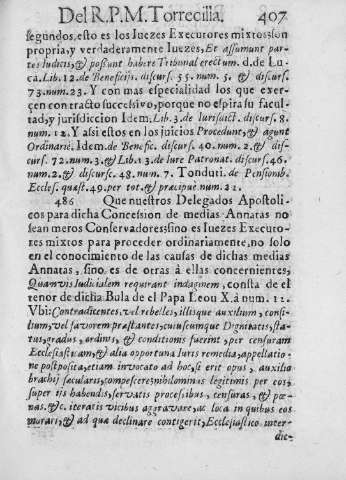 Del R.P.M. Torrecilla. 407
segundos, esto es los Iuezes Executores mixtos son
propria, y verdaderamente Iuezes, Et assumunt par-
tes Iudicis, & possunt habere Tribunal erectum. d. de Lu-
ca. Lib. 12. de Beneficij. discurs. 55. num. 5. & discurs.
73. num. 23. Y con mas especialidad los que exer-
çen con tracto successivo, porque no espira su facul-
tad, y jurisdiccion Idem. Lib. 3. de Iurisdict. discurs. 8.
num. 12. Y assi estos en los juicios Procedunt, & agunt
Ordinarie. Idem. de Benefic. discurs. 40. num. 2. & dis-
curs. 72. num. 3. & Lib. 13. de Iure Patronat. discurs. 46.
num. 2. & discurs. 48. num. 7. Tonduti. de Pensionib.
Eccles. quæst. 49. per tot. & præcipuè num. 21.
486 Que nuestros Delegados Apostoli-
cos para dicha Concession de medias Annatas no
sean meros Conservadores sino es Iuezes Executo-
res mixtos para proceder ordinariamente, no solo
en el conocimiento de las causas de dichas medias
Annatas, sino es de otras à ellas concernientes,
Quamvis Iudicialem requirant indaginem, consta de el
tenor de dicha Bula de el Papa Leon X. à num. 11.
Vbi: Contradicentes, vel rebelles, illisque auxilium, consi-
lium, vel favorem præstantes, cuiuscumque Dignitatis, sta-
tus, gradus, ordinis, & conditionis fuerint, per censuram
Ecclesiasticam, & alia opportuna Iuris remedia, appellatio-
ne postposita, etiam invocato ad hoc, si erit opus, auxilio
brachij sæcularis, compescere: nihilominus legitimis per eos,
super iis habendis, servatis processibus, censuras, & pœ-
nas. &c. iteratis vicibus aggravare, ac loca in quibus eos
morari, & ad quæ declinare contigerit, Ecclesiastico inter-
dic-